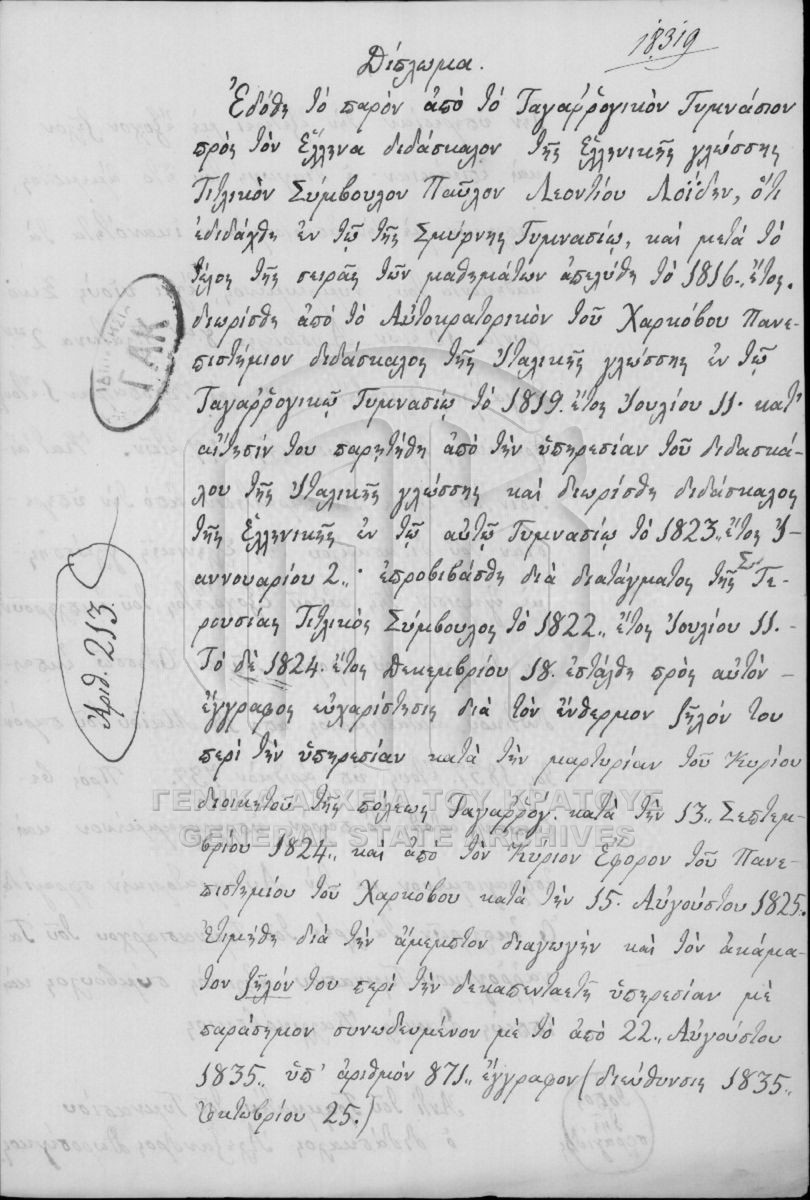 18319
Δίπλωμα.
Ἐδόθη τὸ παρὸν ἀπὸ τὸ Ταγαῤῥογικὸν Γυμνάσιον
πρὸς τὸν Ἕλληνα διδάσκαλον τῆς Ἑλληνικῆς γλώσσης
Τιτλικὸν Σύμβουλον Παῦλον Λεοντίου Λοΐδην, ὅτι
ἐδιδάχθη ἐν τῷ τῆς Σμύρνης Γυμνασίῳ, καὶ μετὰ τὸ
τέλος τῆς σειρᾶς τῶν μαθημάτων ἀπελύθη τὸ 1816., ἔτος.
διωρίσθη ἀπὸ τὸ Αὐτοκρατορικὸν τοῦ Χαρκόβου Πανε-
πιστήμιον διδάσκαλος τῆς Ἰταλικῆς γλώσσης ἐν τῷ
Ταγαῤῥογικῷ Γυμνασίῳ τὸ 1819. ἔτος Ἰουλίου 11. κατ'
αἴτησίν του παρητήθη ἀπὸ τὴν ὑπηρεσίαν τοῦ διδασκά-
λου τῆς Ἰταλικῆς γλώσσης καὶ διωρίσθη διδάσκαλος
τῆς Ἑλληνικῆς ἐν τῷ αὐτῷ Γυμνασίῳ τὸ 1823., ἔτος Ἰ-
αννουαρίου 2.,. ἐπροβιβάσθη διὰ διατάγματος τῆς Σ. Γε-
ρουσίας Τιτλικὸς Σύμβουλος τὸ 1822., ἔτος Ἰουλίου 11.
Τὸ δὲ 1824. ἔτος Δεκεμβρίου 18. ἐστάλθη πρὸς αὐτὸν
ἔγγραφος εὐχαρίστησις διὰ τὸν ἔνθερμον ζῆλόν του
περὶ τὴν ὑπηρεσίαν κατὰ τὴν μαρτυρίαν τοῦ Κυρίου
διοικητοῦ τῆς πόλεως Ταγαῤῥόγ. κατὰ τὴν 13., Σεπτεμ-
βρίου 1824., καὶ ἀπὸ τὸν Κύριον Ἔφορον τοῦ Πανε-
πιστημίου τοῦ Χαρκόβου κατὰ τὴν 15. Αὐγούστου 1825.
Ἐτιμήθη διὰ τὴν ἄμεμπτον διαγωγὴν καὶ τὸν ἀκάμα-
τον ζῆλόν του περὶ τὴν δεκαπενταετῆ ὑπηρεσίαν μὲ
παράσημον συνωδευμένον μὲ τὸ ἀπὸ 22., Αὐγούστου
1835., ὑπ' ἀριθμὸν 871., ἔγγραφον (διεύθυνσις 1835.,
Ὀκτωβρίου 25.)
Ἀριθ. 213.
ΓΑΚ
ΓΕΝΙΚΑ ΑΡΧΕΙΑ ΤΟΥ ΚΡΑΤΟΥΣ
GENERAL STATE ARCHIVES